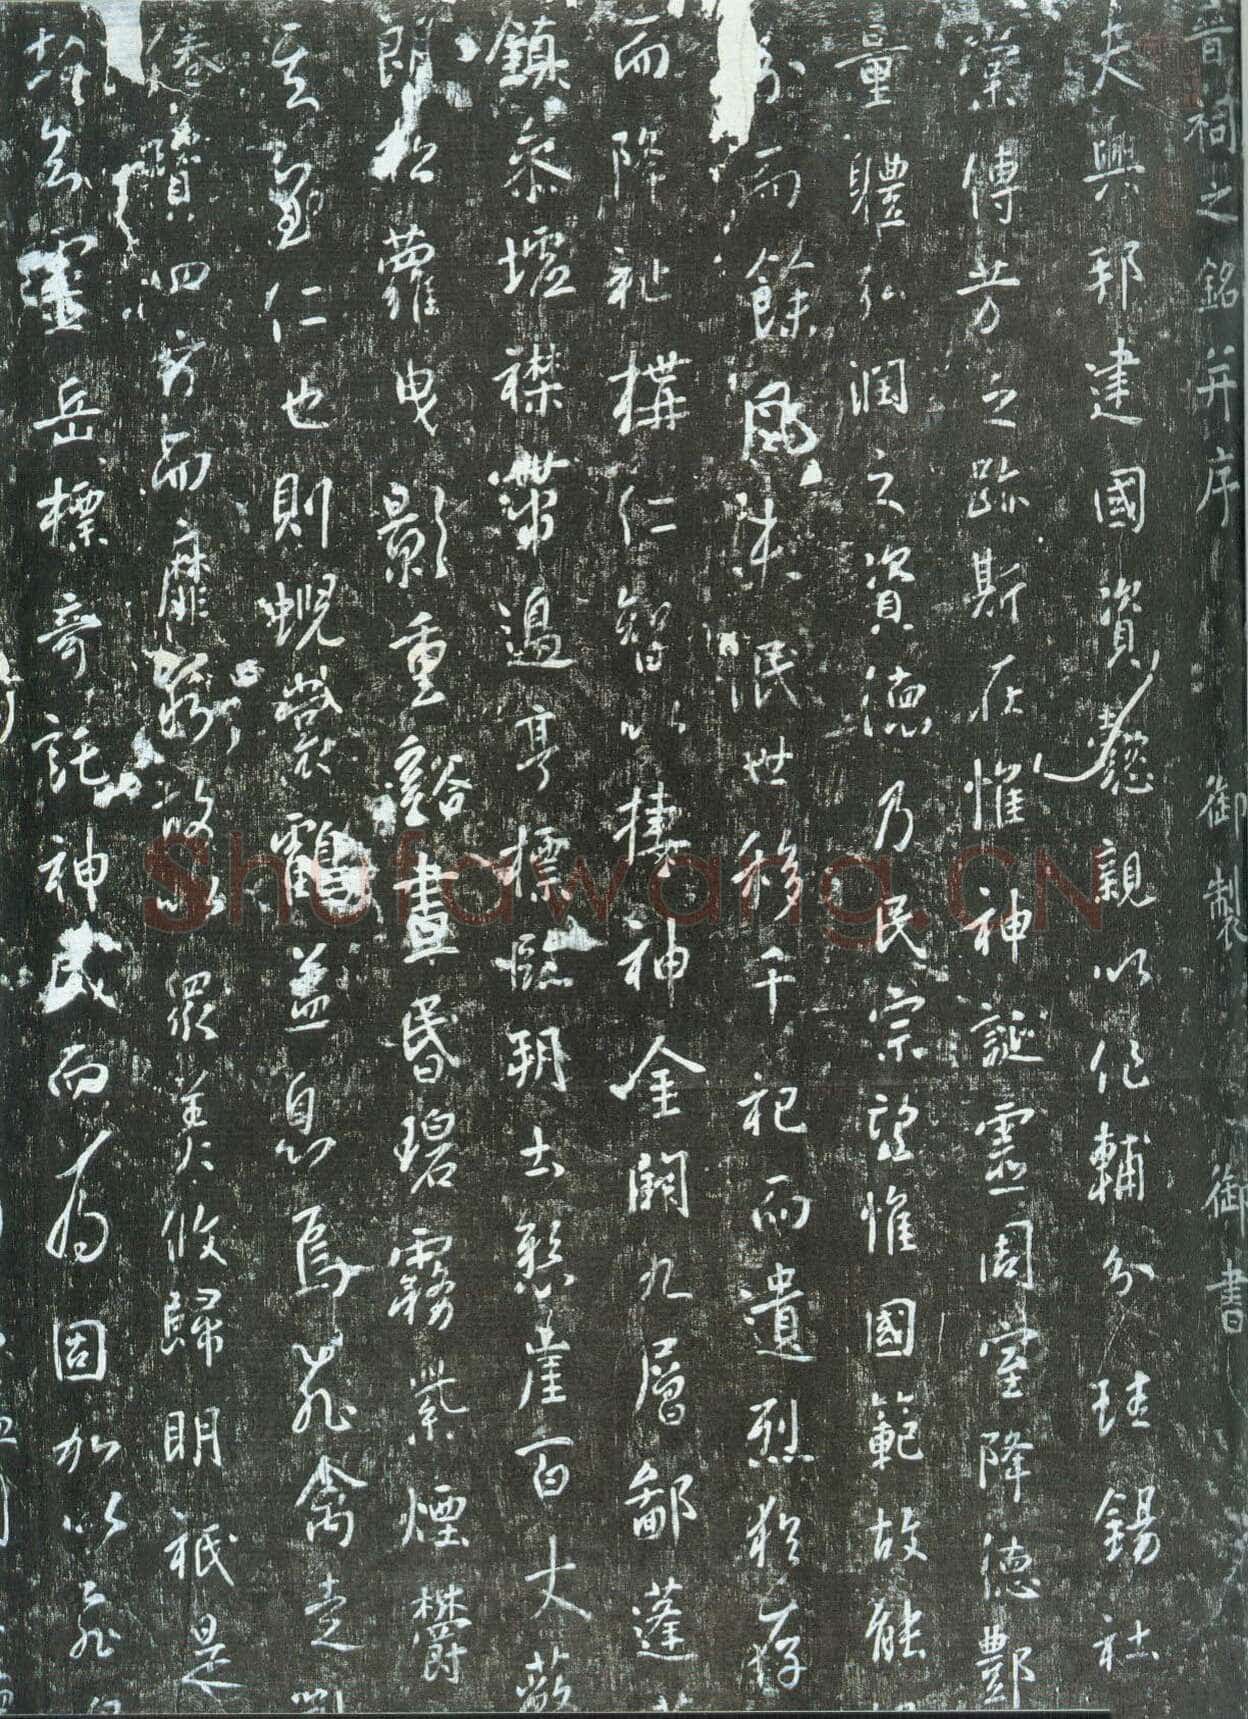 晉祠之銘并序 御製 御書
夫興邦建國資懿親以作輔分珪錫社
棠傳芳之跡斯在惟神誕靈周室降德酆
量體弘潤之資德乃民宗望惟國範故能
易而餘風未泯世移千祀而遺烈猶存
而降祉構仁智以棲神金闕九層鄙蓬
鎮參墟襟帶邊亭標臨朔土懸崖百丈蔽
朗松蘿曳影重谿晝昏碧霧紫煙鬱
其至仁也則蜺裳鶴蓋息焉飛禽走
倦贍四方而靡窮故以衆美攸歸明祇是
故知靈岳標奇託神威而為固加以飛
Shufawang.CN